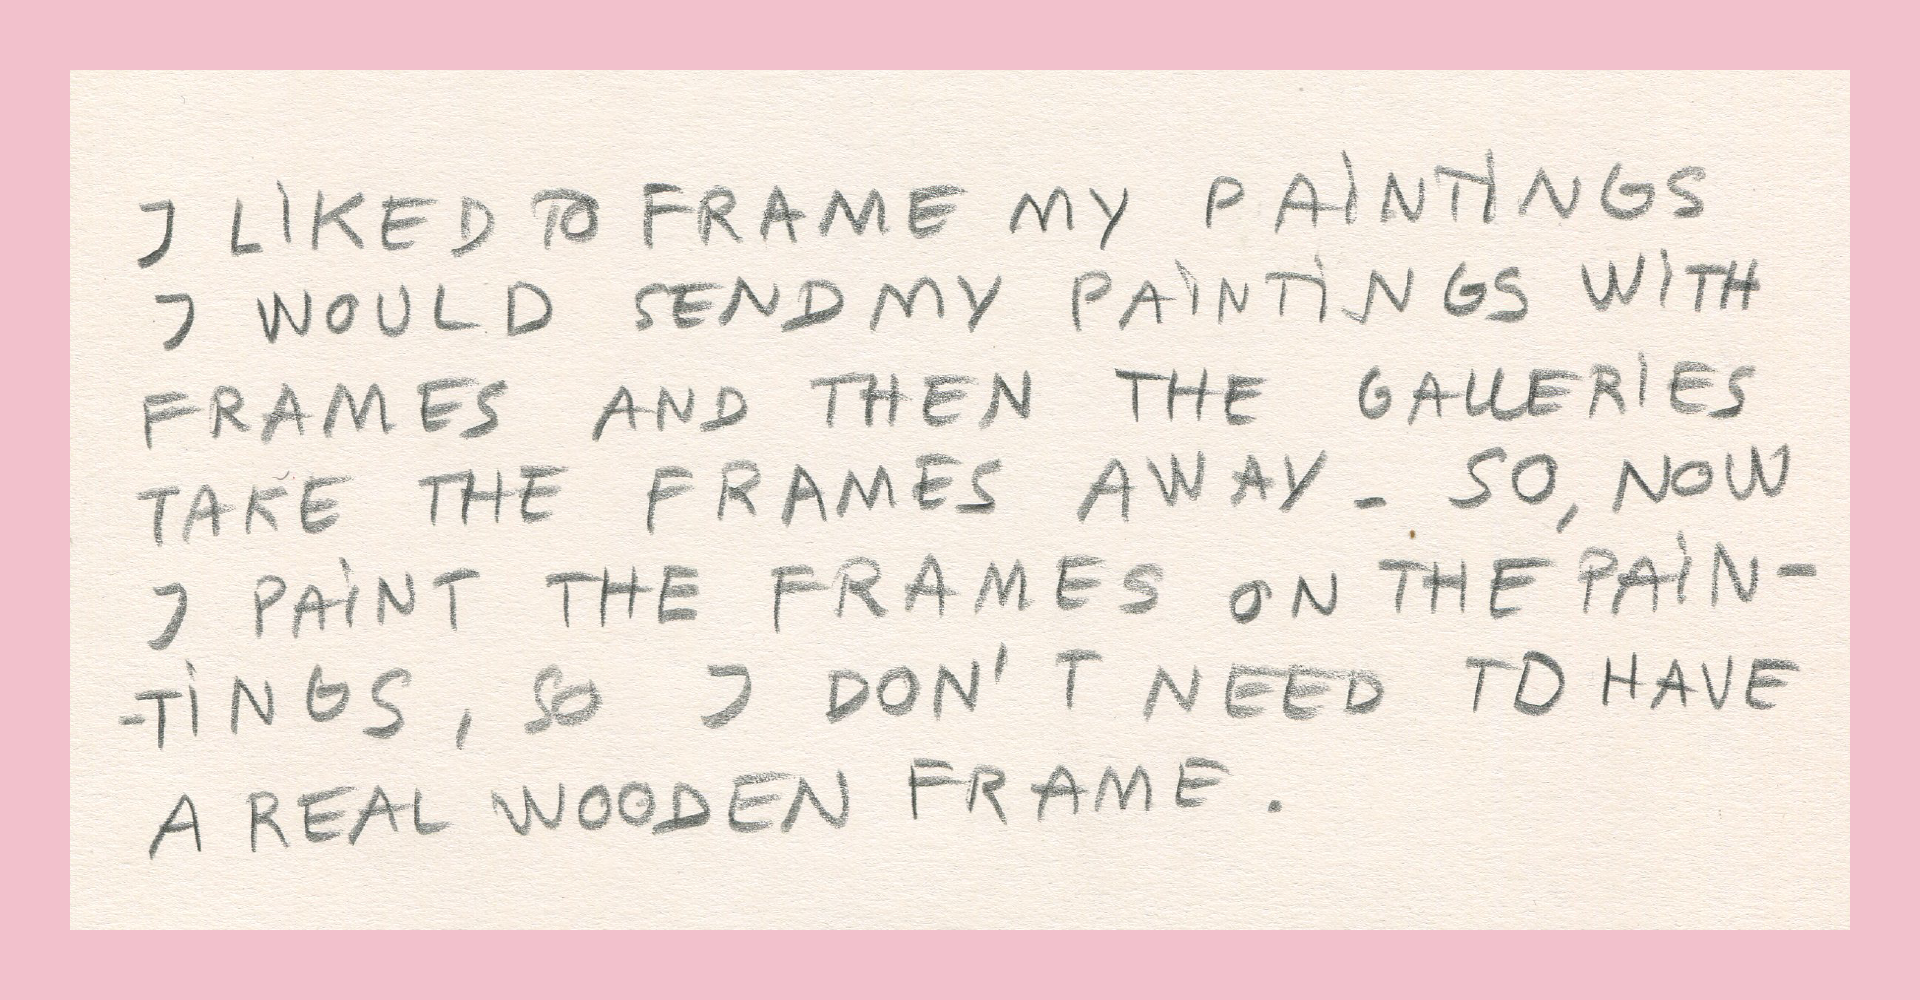 I LIKED TO FRAME MY PAINTINGS
I WOULD SEND MY PAINTINGS WITH
FRAMES AND THEN THE GALLERIES
TAKE THE FRAMES AWAY - SO, NOW
I PAINT THE FRAMES ON THE PAIN-
-TINGS, SO I DON'T NEED TO HAVE
A REAL WOODEN FRAME.